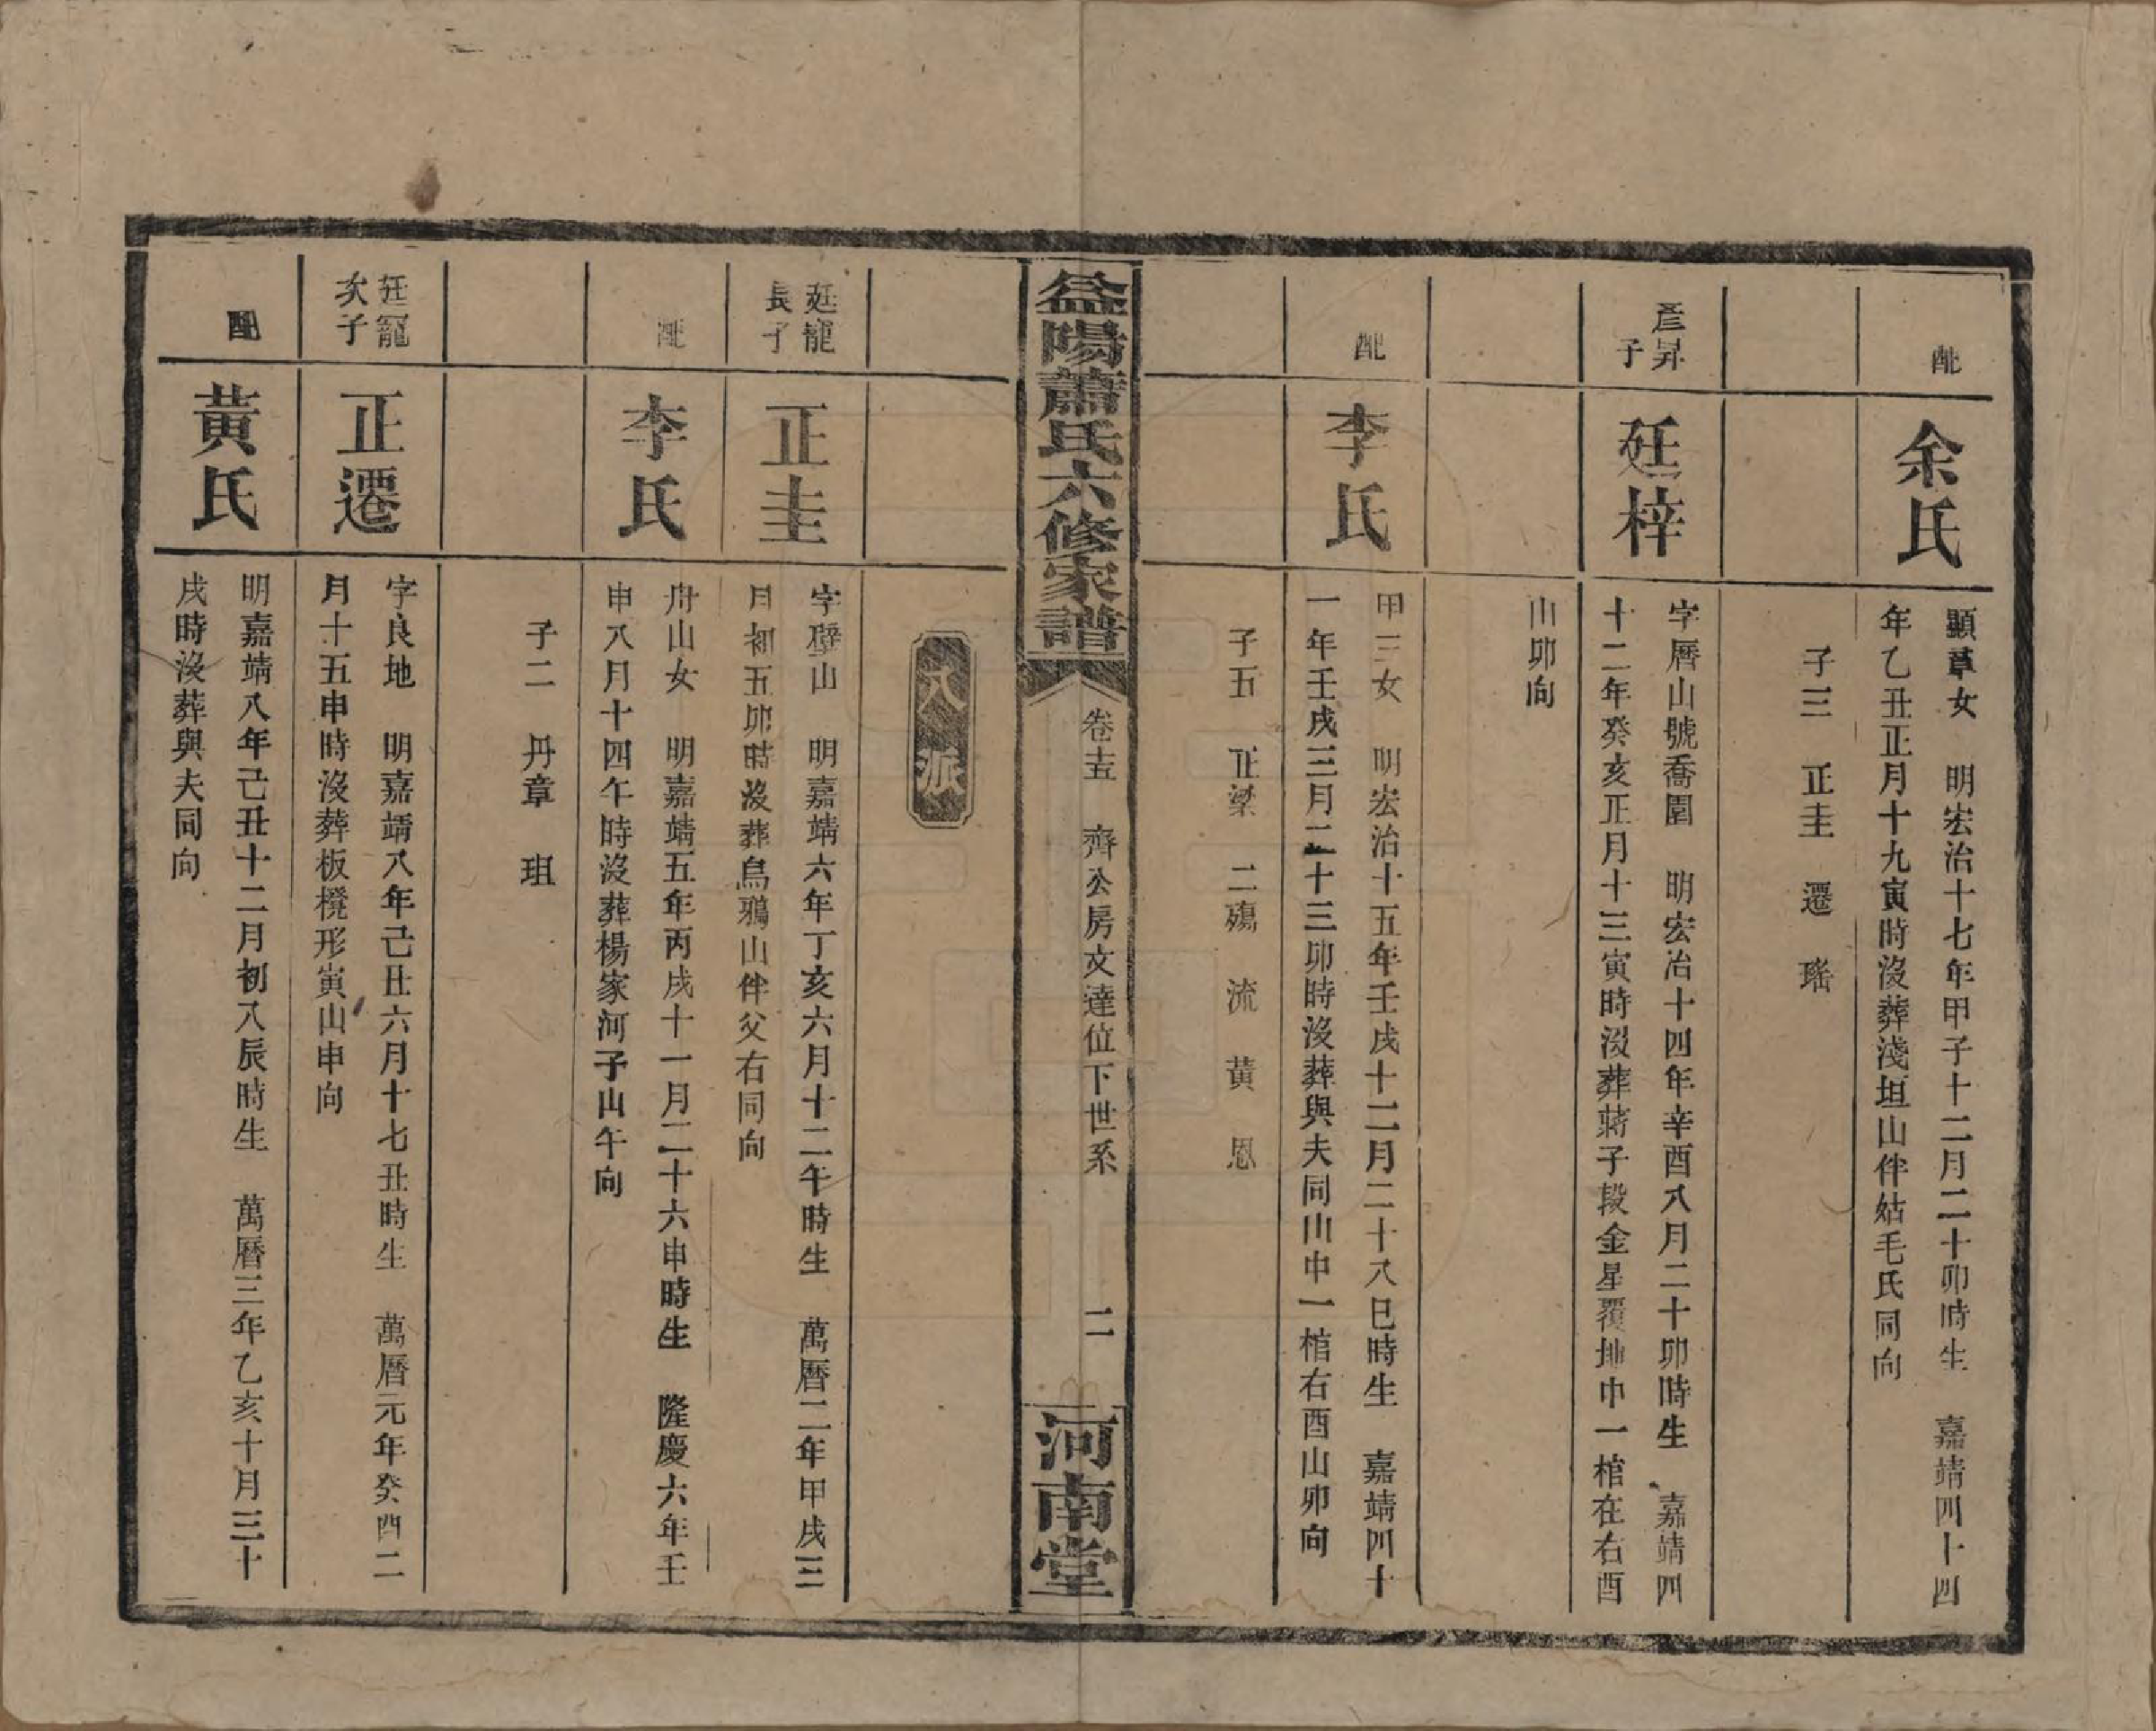 配
余氏
顯章女　明宏治十七年甲子十二月二十卯時生　嘉靖四十四
年乙丑正月十九寅時沒葬淺垣山伴姑毛氏同向
子三　正圭　遷　瑤
彥昇
子
廷梓
字曆山號喬園　明宏治十四年辛酉八月二十卯時生　嘉靖四
十二年癸亥正月十三寅時沒葬蔣子段金星覆地中一棺在右酉
山卯向
配
李氏
甲三女　明宏治十五年壬戌十二月二十八巳時生　嘉靖四十
一年壬戌三月二十三卯時沒葬與夫同山中一棺右酉山卯向
子五　正梁　二殤　流　黃　恩
益陽蕭氏六修家譜
卷十五　齊公房文達位下世系　二
河南堂
八派
廷寵
長子
正圭
字璧山　明嘉靖六年丁亥六月十二午時生　萬曆二年甲戌三
月初五卯時沒葬烏鴉山伴父右同向
配
李氏
舟山女　明嘉靖五年丙戌十一月二十六申時生　隆慶六年壬
申八月十四午時沒葬楊家河子山午向
子二　丹章　珇
廷寵
次子
正遷
字良地　明嘉靖八年己丑六月十七丑時生　萬曆元年癸酉二
月十五申時沒葬板櫈形寅山申向
配
黃氏
明嘉靖八年己丑十二月初八辰時生　萬曆三年乙亥十月三十
戌時沒葬與夫同向